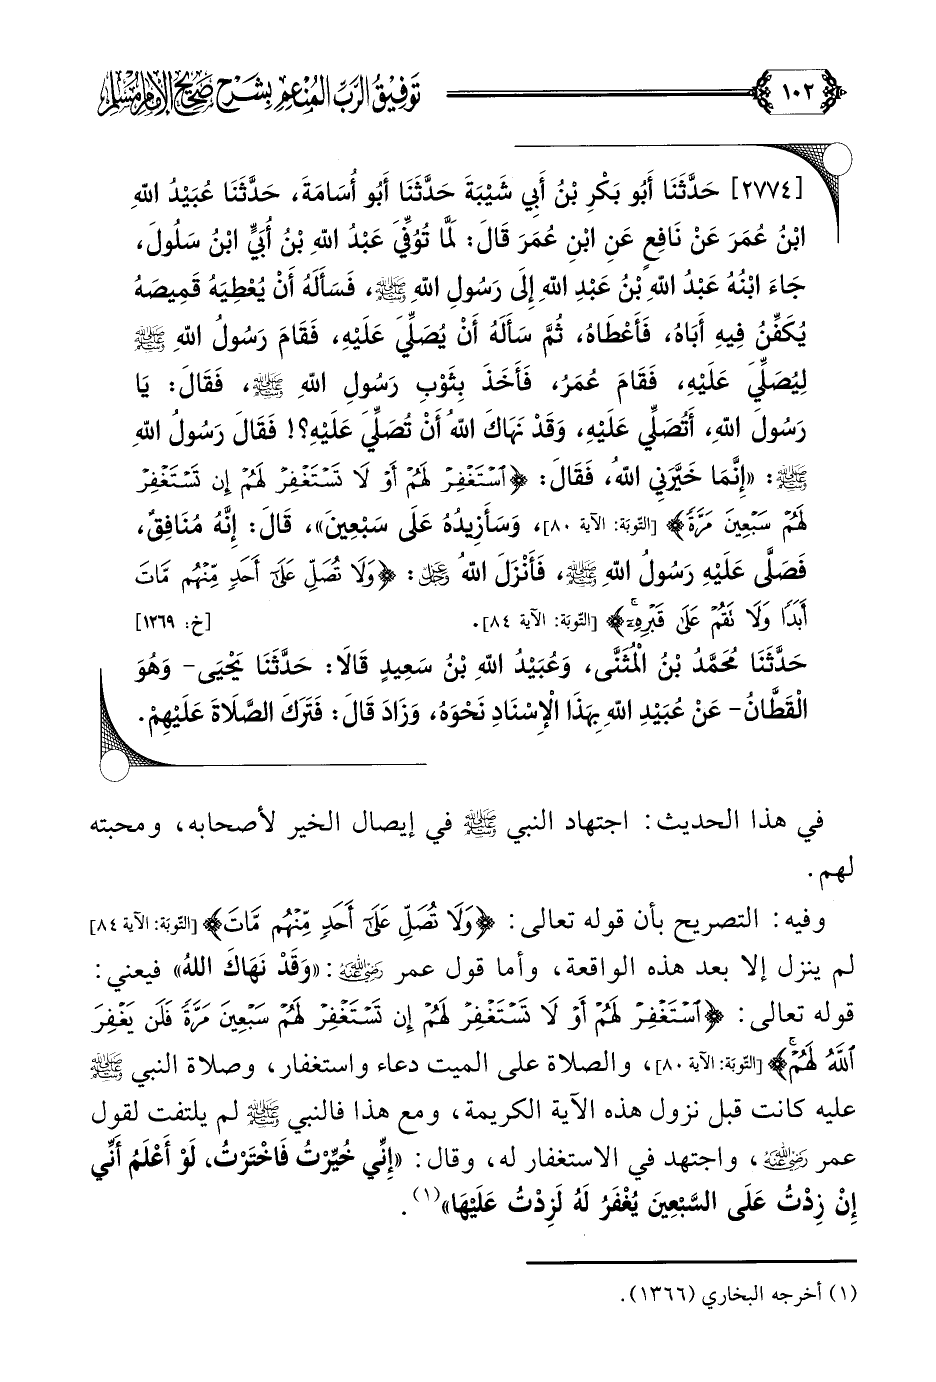 ١٠٢
تَوفِيقُ الرَّبِّ المُنْعِمِ بِشَرْحِ صَحِيحِ الإِمَامِ مُسْلِمٍ
[٢٧٧٤] حَدَّثَنَا أَبُو بَكْرِ بْنُ أَبِي شَيْبَةَ حَدَّثَنَا أَبُو أُسَامَةَ، حَدَّثَنَا عُبَيْدُ اللهِ
ابْنُ عُمَرَ عَنْ نَافِعٍ عَنِ ابْنِ عُمَرَ قَالَ: لَمَّا تُوُفِّيَ عَبْدُ اللهِ بْنُ أُبَيٍّ ابْنُ سَلُولَ،
جَاءَ ابْنُهُ عَبْدُ اللهِ بْنُ عَبْدِ اللهِ إِلَى رَسُولِ اللهِ ﷺ، فَسَأَلَهُ أَنْ يُعْطِيَهُ قَمِيصَهُ
يُكَفِّنُ فِيهِ أَبَاهُ، فَأَعْطَاهُ، ثُمَّ سَأَلَهُ أَنْ يُصَلِّيَ عَلَيْهِ، فَقَامَ رَسُولُ اللهِ ﷺ
لِيُصَلِّيَ عَلَيْهِ، فَقَامَ عُمَرُ، فَأَخَذَ بِثَوْبِ رَسُولِ اللهِ ﷺ، فَقَالَ: يَا
رَسُولَ اللهِ، أَتُصَلِّي عَلَيْهِ، وَقَدْ نَهَاكَ اللهُ أَنْ تُصَلِّيَ عَلَيْهِ؟! فَقَالَ رَسُولُ اللهِ
ﷺ: «إِنَّمَا خَيَّرَنِي اللهُ، فَقَالَ: ﴿ٱسۡتَغۡفِرۡ لَهُمۡ أَوۡ لَا تَسۡتَغۡفِرۡ لَهُمۡ إِن تَسۡتَغۡفِرۡ
لَهُمۡ سَبۡعِينَ مَرَّةٗ﴾ [التّوبَة: الآية ٨٠]، وَسَأَزِيدُهُ عَلَى سَبْعِينَ»، قَالَ: إِنَّهُ مُنَافِقٌ،
فَصَلَّى عَلَيْهِ رَسُولُ اللهِ ﷺ، فَأَنْزَلَ اللهُ عَزَّ وَجَلَّ: ﴿وَلَا تُصَلِّ عَلَىٰٓ أَحَدٖ مِّنۡهُم مَّاتَ
أَبَدٗا وَلَا تَقُمۡ عَلَىٰ قَبۡرِهِۦٓۚ﴾ [التّوبَة: الآية ٨٤]. [خ: ١٣٦٩]
حَدَّثَنَا مُحَمَّدُ بْنُ الْمُثَنَّى، وَعُبَيْدُ اللهِ بْنُ سَعِيدٍ قَالَا: حَدَّثَنَا يَحْيَى- وَهُوَ
الْقَطَّانُ- عَنْ عُبَيْدِ اللهِ بِهَذَا الْإِسْنَادِ نَحْوَهُ، وَزَادَ قَالَ: فَتَرَكَ الصَّلَاةَ عَلَيْهِمْ.
في هذا الحديث: اجتهاد النبي ﷺ في إيصال الخير لأصحابه، ومحبته
لهم.
وفيه: التصريح بأن قوله تعالى: ﴿وَلَا تُصَلِّ عَلَىٰٓ أَحَدٖ مِّنۡهُم مَّاتَ﴾ [التّوبَة: الآية ٨٤]
لم ينزل إلا بعد هذه الواقعة، وأما قول عمر رضي الله عنه: «وَقَدْ نَهَاكَ اللهُ» فيعني:
قوله تعالى: ﴿ٱسۡتَغۡفِرۡ لَهُمۡ أَوۡ لَا تَسۡتَغۡفِرۡ لَهُمۡ إِن تَسۡتَغۡفِرۡ لَهُمۡ سَبۡعِينَ مَرَّةٗ فَلَن يَغۡفِرَ
ٱللَّهُ لَهُمۡۚ﴾ [التّوبَة: الآية ٨٠]، والصلاة على الميت دعاء واستغفار، وصلاة النبي ﷺ
عليه كانت قبل نزول هذه الآية الكريمة، ومع هذا فالنبي ﷺ لم يلتفت لقول
عمر رضي الله عنه، واجتهد في الاستغفار له، وقال: «إِنِّي خُيِّرْتُ فَاخْتَرْتُ، لَوْ أَعْلَمُ أَنِّي
إِنْ زِدْتُ عَلَى السَّبْعِينَ يُغْفَرُ لَهُ لَزِدْتُ عَلَيْهَا»(١).
(١) أخرجه البخاري (١٣٦٦).